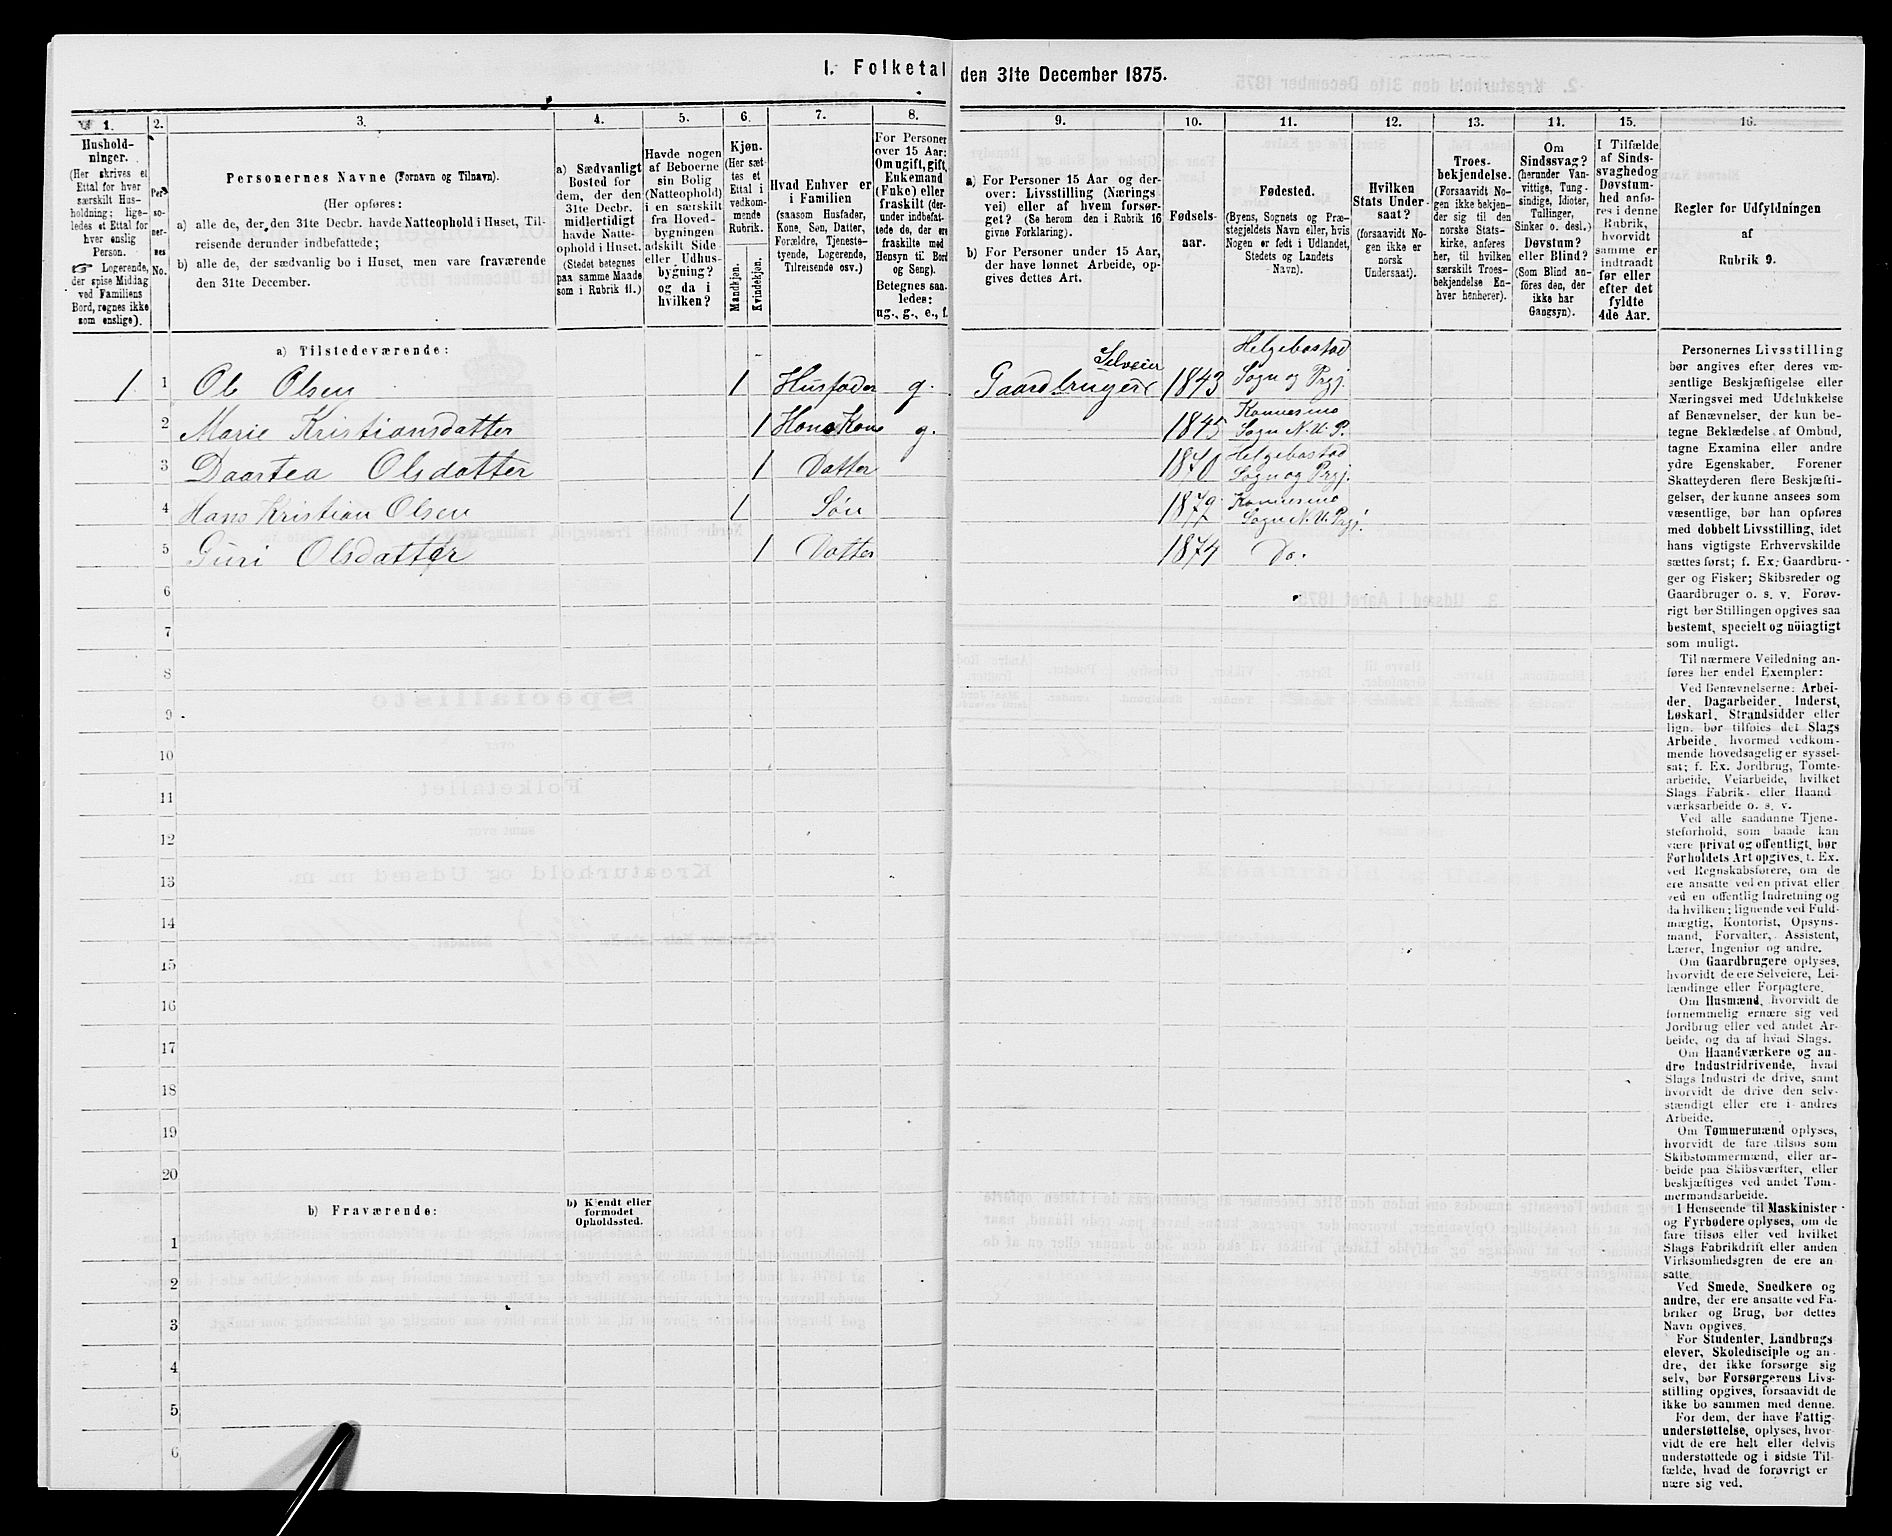 I. Folketal den 31te December 1875.
1. 2. 3. 4. 5. 6. 7. 8. 9. 10. 11. 12. 13. 14. 15. 16.
Hushold-
ninger.
(Her skrives et
Ettal for hver
særskilt Hus-
holdning; lige-
ledes et Ettal for
hver enslig
Person.
☞ Logerende,
der spise Middag
ved Familiens
Bord, regnes ikke
som enslige).
Per-
so-
ner-
nes
No.
Personernes Navne (Fornavn og Tilnavn).
(Her opføres:
a) alle de, der den 31te Decbr. havde Natteophold i Huset, Til-
reisende derunder indbefattede;
b) alle de, der sædvanlig bo i Huset, men vare fraværende
den 31te December.
a) Sædvanligt
Bosted for
dem, der den
31te Decbr.
midlertidigt
havde Natte-
ophold i Huset.
(Stedet betegnes
paa samme Maade
som i Rubrik 11.)
Havde nogen
af Beboerne
sin Bolig
(Natteophold)
i en særskilt
fra Hoved-
bygningen
adskilt Side-
eller Udhus-
bygning?
og da i
hvilken?
Kjøn.
(Her sæt-
tes et
Ettal i
vedkom-
mende
Rubrik.
Mandkjøn.
Kvindekjøn.
Hvad Enhver er
i Familien
(saasom Husfader,
Kone, Søn, Datter,
Forældre, Tjeneste-
tyende, Logerende,
Tilreisende osv.)
For Personer
over 15 Aar:
Om ugift, gift,
Enkemand
(Enke) eller
fraskilt (der-
under indbefat-
tede de, der ere
fraskilte med
Hensyn til Bord
og Seng).
Betegnes saa-
ledes:
ug., g., e., f.
a) For Personer 15 Aar og der-
over: Livsstilling (Nærings
vei) eller af hvem forsør-
get? (Se herom den i Rubrik 16
givne Forklaring).
b) For Personer under 15 Aar,
der have lønnet Arbeide, op-
gives dettes Art.
Fødsels-
aar.
Fødested.
(Byens, Sognets og Præ-
stegjeldets Navn eller, hvis
Nogen er født i Udlandet,
Stedets og Landets
Navn).
Hvilken
Stats Under-
saat?
(forsaavidt No-
gen ikke er
norsk
Undersaat).
Troes-
bekjendelse.
(Forsaavidt No-
gen ikke bekjen-
der sig til den
norske Stats-
kirke, anføres
her, til hvilken
særskilt Troes-
bekjendelse En-
hver henhører).
Om
Sindssvag?
(herunder Van-
vittige, Tung-
sindige, Idioter,
Tullinger,
Sinker o. desl.)
Døvstum?
eller Blind?
(Som Blind an-
føres den, der
ikke har
Gangsyn).
I Tilfælde
af Sinds-
svaghed og
Døvstum-
hed anfø-
res i denne
Rubrik,
hvorvidt
samme er
indtraadt
før eller
efter det
fyldte
4de Aar.
Regler for Udfyldningen
af
Rubrik 9.
a) Tilstedeværende:
1 1 Ole Olsen 1 Husfader g. Gaardbruger Selveier 1843 Helgebostad Sogn og Prgj.
2 Marie Kristiansdatter 1 Hans Kone g. 1845 Konnesmo Sogn N. U. P.
3 Daartea Olsdatter 1 Datter 1870 Helgebostad Sogn og Prgj.
4 Hans Kristian Olsen 1 Søn 1872 Konnesmo Sogn N. U. Prgj.
5 Guri Olsdatter 1 Datter 1874 Do.
6
7
8
9
10
11
12
13
14
15
16
17
18
19
20
b) Fraværende:
b) Kjendt eller
formodet
Opholdssted.
1
2
3
4
5
6
Personernes Livsstilling
bør angives efter deres væ-
sentlige Beskjæftigelse eller
Næringsvei med Udelukkelse
af Benævnelser, der kun be-
tegne Beklædelse af Ombud,
tagne Examina eller andre
ydre Egenskaber. Forener
Skatteyderen flere Beskjæfti-
gelser, der kunne ansees som
væsentlige, bør han opføres
med dobbelt Livsstilling, idet
hans vigtigste Erhvervskilde
sættes først; f. Ex. Gaardbru-
ger og Fisker; Skibsreder og
Gaardbruger o. s. v. Forøv-
rigt bør Stillingen opgives saa
bestemt, specielt og nöiagtigt
som muligt.
Til nærmere Veiledning an-
føres her endel Exempler:
Ved Benævnelserne: Arbei-
der, Dagarbeider, Inderst,
Løskarl, Strandsidder eller
lign. bør tilføies det Slags
Arbeide, hvormed vedkom-
mende hovedsagelig er syssel-
sat; f. Ex. Jordbrug, Tomte-
arbeide, Veiarbeide, hvilket
Slags Fabrik- eller Haand
værksarbeide o. s. v.
Ved alle saadanne Tjene-
steforhold, som baade kan
være privat og offentligt, bør
Forholdets Art opgives, f. Ex.
ved Regnskabsførere, om de
ere ansatte ved en privat eller
ved en offentlig Indretning og
da hvilken; lignende ved Fuld-
mægtig, Kontorist, Opsyns-
mand, Forvalter, Assistent,
Lærer, Ingeniør og andre.
Om Gaardbrugere oplyses,
hvorvidt de ere Selveiere, Lei-
lændinge eller Forpagtere.
Om Husmænd, hvorvidt de
fornemmelig ernære sig ved
Jordbrug eller ved andet Ar-
beide, og da af hvad Slags.
Om Haandværkere og an-
dre Industridrivende, hvad
Slags Industri de drive, samt
hvorvidt de drive den selv-
stændigt eller ere i andres
Arbeide.
Om Tømmermænd oplyses,
hvorvidt de fare tilsøs som
Skibstømmermænd, eller ar-
beide paa Skibsværfter, eller
beskjæftiges ved andet Tøm-
mermandsarbeide.
I Henseende til Maskinister
og Fyrbødere oplyses, om de
fare tilsøs eller ved hvilket
Slags Fabrikdrift eller anden
Virksomhedsgren de ere an-
satte.
Ved Smede, Snedkere og
andre, der ere ansatte ved Fa-
briker og Brug, bør dettes
Navn opgives.
For Studenter, Landbrugs
elever, Skoledisciple og an-
dre, der ikke forsørge sig
selv, bør Forsørgerens Livs-
stilling opgives, forsaavidt de
ikke bo sammen med denne.
For dem, der have Fattig-
understøttelse, oplyses, hvor-
vidt de ere helt eller delvis
understøttede og i sidste Til-
fælde, hvad de forøvrigt er
nære sig ved.